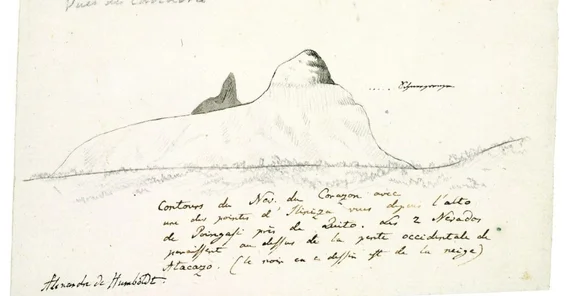 Vues du Corazon
Schneegrenze
Contours du Nev. du Corazon avec
une des pointes d'Iliniza vues depuis l'alto
de Poingasi près de Quito. Les 2 Nevados
paraissent au dessus de la pente occidentale de
Atacazo. (le noir en ce dessin est de la neige)
Alexandre de Humboldt.